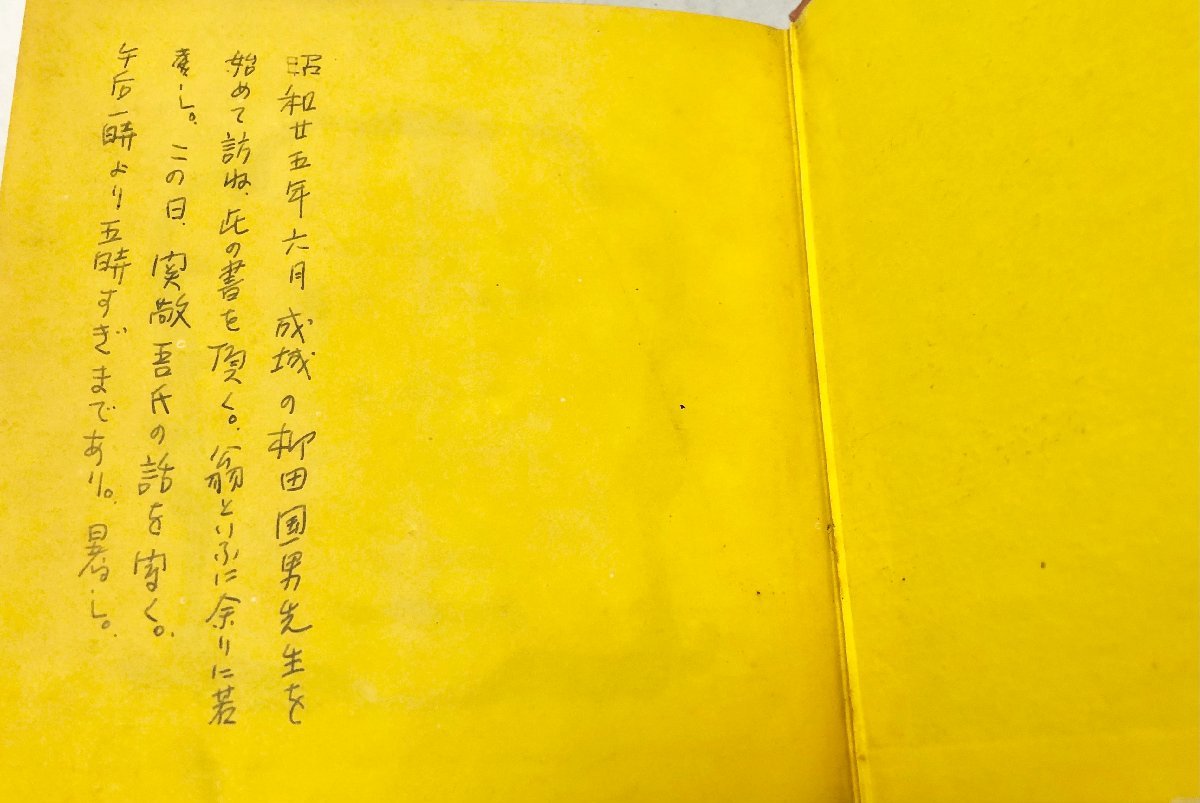 昭和廿五年六月成城の柳田国男先生を
始めて訪ね、此の書を頂く。翁といふに余りに若
々し。この日、関敬吾氏の話を聞く。
午后一時より五時すぎまであり。暑し。